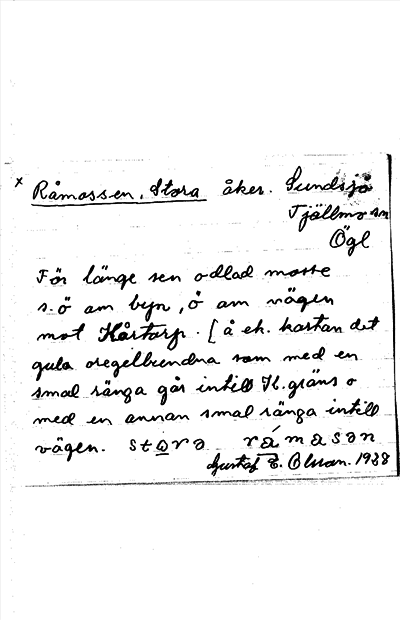 x Råmossen, Stora åker. Sundsjö
Tjällmo sn
Ögl
För länge sen odlad mosse
s.ö om byn, ö om vägen
mot Hårtorp. [å ek. kartan det
gula oregelbundna som med en
smal ränga går intill H. gräns o
med en annan smal ränga intill
vägen. stɷrə råmɑsən
Gustaf E. Olsson. 1938